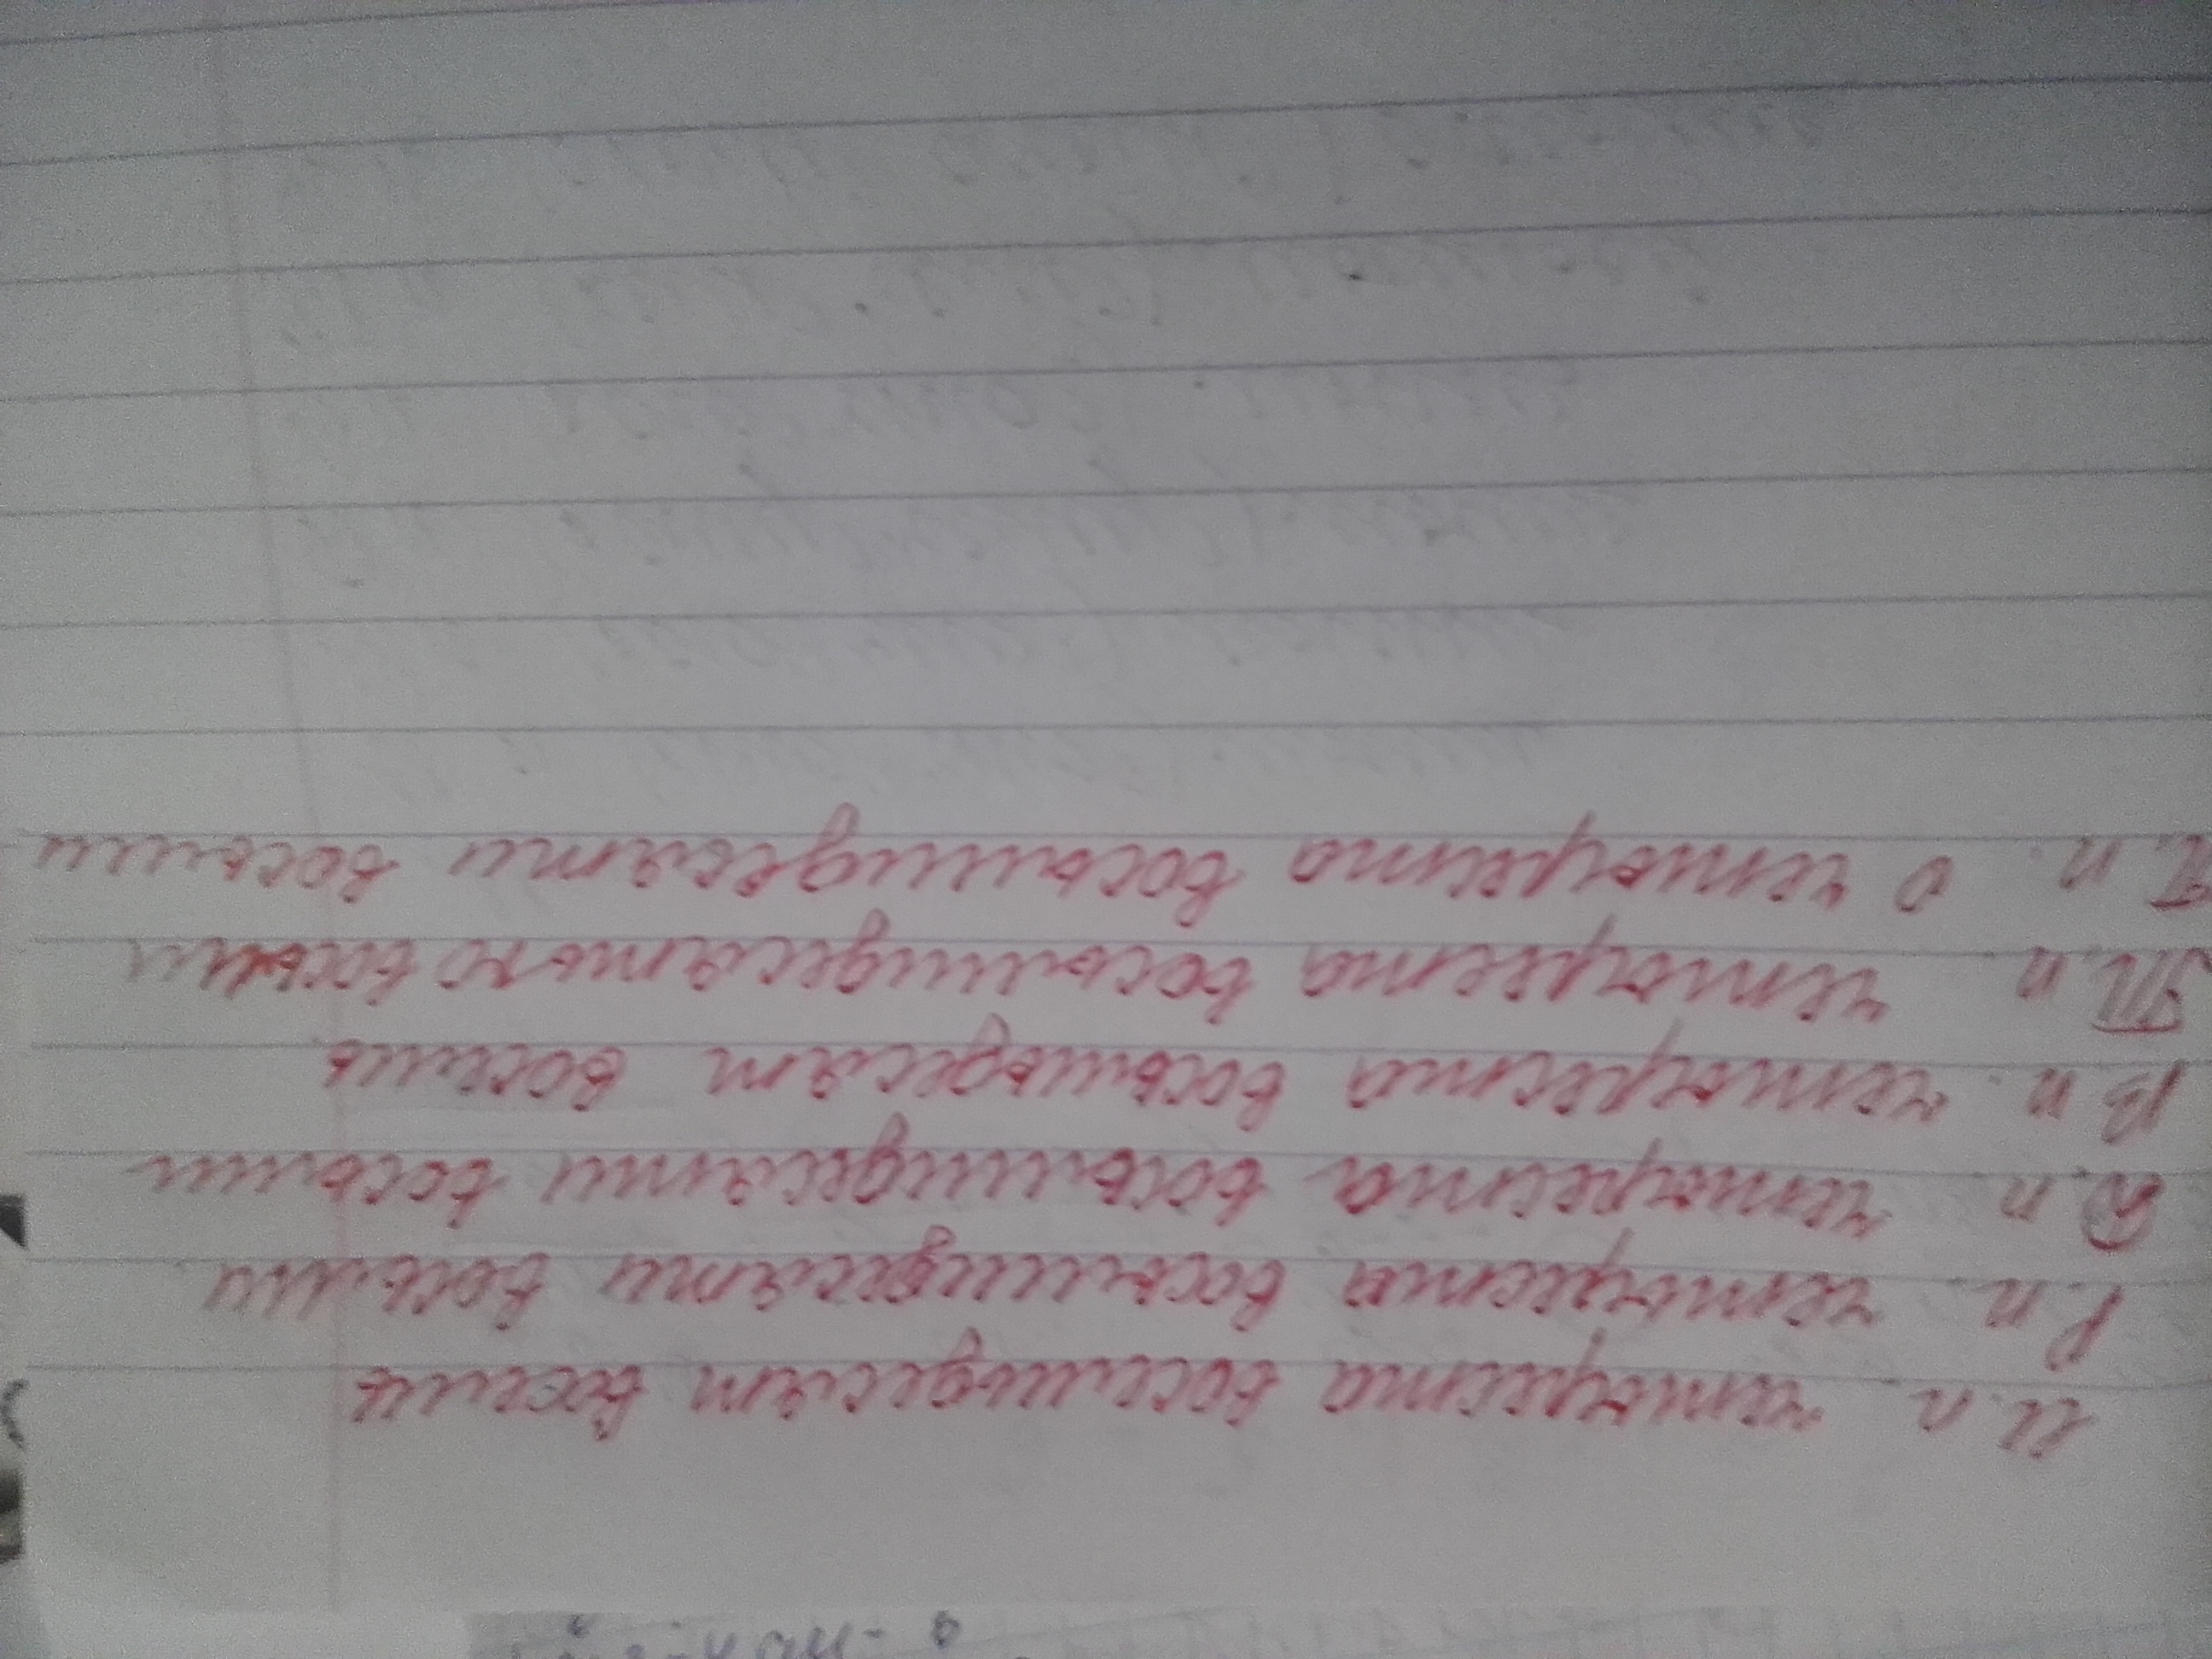 И.п. четыреста восемьдесят восемь
Р.п. четыреста восьмидесяти восьми
Д.п четыреста восьмидесяти восьми
В.п. четыреста восемьдесят восемь
Т.п четыреста восьмидесятью восьми
П.п. о четыреста восьмидесяти восьми